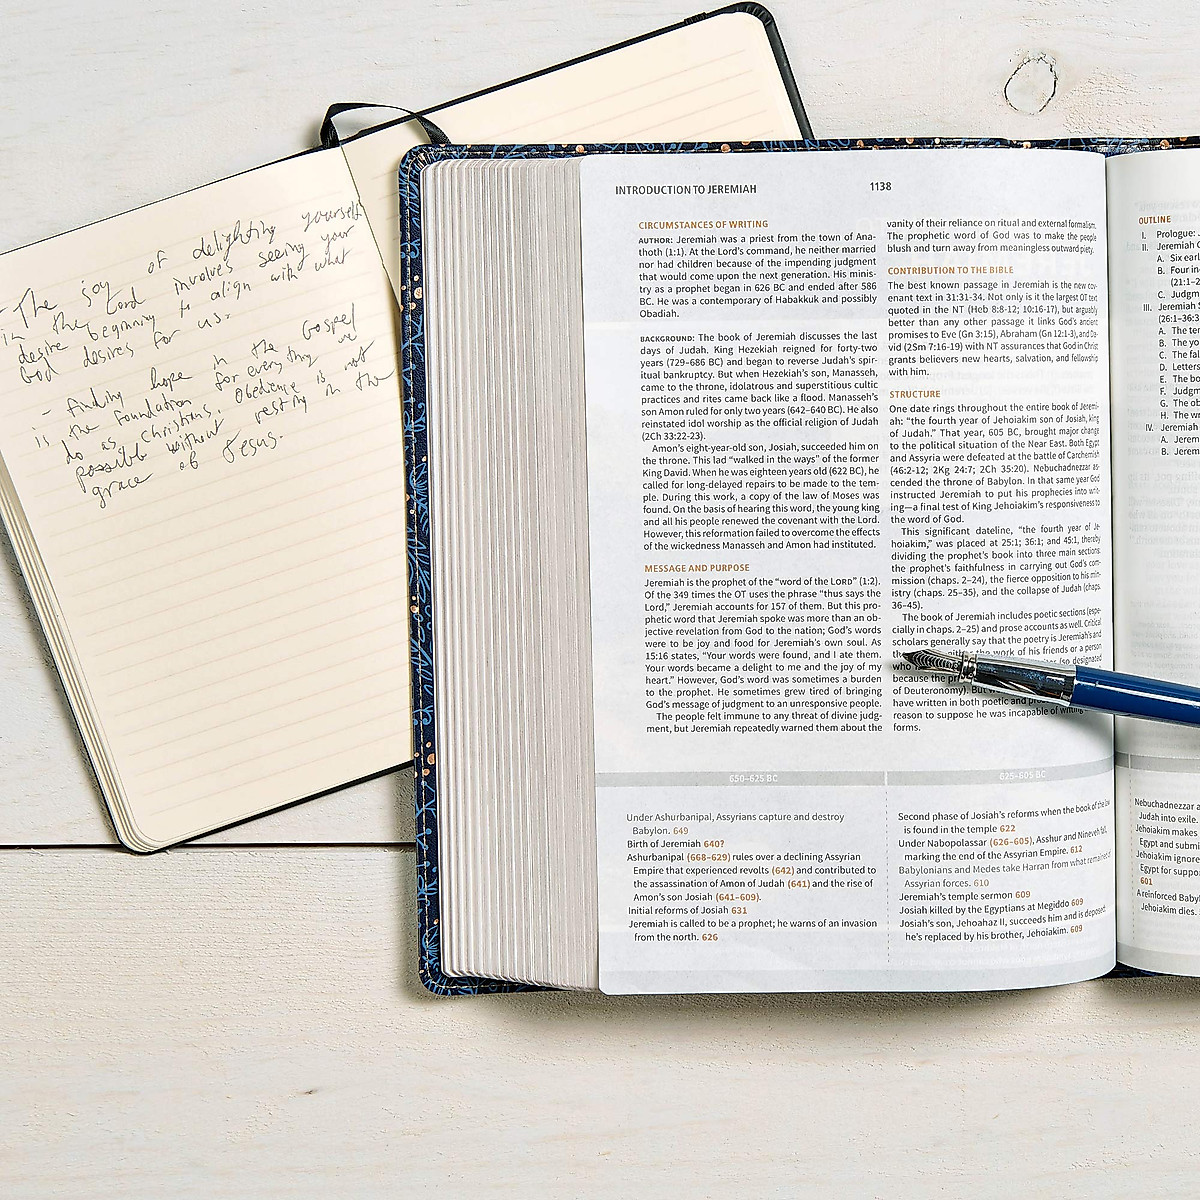 - The joy of delighting yourself
in the Lord involves seeing your
desire beginning to align with what
God desires for us.
- finding hope in the Gospel
is the foundation for everything we
do as Christians. Obedience is not
possible without resting in the
grace of Jesus.
INTRODUCTION TO JEREMIAH
1138
CIRCUMSTANCES OF WRITING
AUTHOR: Jeremiah was a priest from the town of Ana-
thoth (1:1). At the Lord's command, he neither married
nor had children because of the impending judgment
that would come upon the next generation. His minis-
try as a prophet began in 626 BC and ended after 586
BC. He was a contemporary of Habakkuk and possibly
Obadiah.
BACKGROUND: The book of Jeremiah discusses the last
days of Judah. King Hezekiah reigned for forty-two
years (729–686 BC) and began to reverse Judah's spir-
itual bankruptcy. But when Hezekiah's son, Manasseh,
came to the throne, idolatrous and superstitious cultic
practices and rites came back like a flood. Manasseh's
son Amon ruled for only two years (642–640 BC). He also
reinstated idol worship as the official religion of Judah
(2Ch 33:22-23).
Amon's eight-year-old son, Josiah, succeeded him on
the throne. This lad "walked in the ways" of the former
King David. When he was eighteen years old (622 BC), he
called for long-delayed repairs to be made to the tem-
ple. During this work, a copy of the law of Moses was
found. On the basis of hearing this word, the young king
and all his people renewed the covenant with the Lord.
However, this reformation failed to overcome the effects
of the wickedness Manasseh and Amon had instituted.
MESSAGE AND PURPOSE
Jeremiah is the prophet of the "word of the LORD" (1:2).
Of the 349 times the OT uses the phrase "thus says the
Lord," Jeremiah accounts for 157 of them. But this pro-
phetic word that Jeremiah spoke was more than an ob-
jective revelation from God to the nation; God's words
were to be joy and food for Jeremiah's own soul. As
15:16 states, "Your words were found, and I ate them.
Your words became a delight to me and the joy of my
heart." However, God's word was sometimes a burden
to the prophet. He sometimes grew tired of bringing
God's message of judgment to an unresponsive people.
The people felt immune to any threat of divine judg-
ment, but Jeremiah repeatedly warned them about the
vanity of their reliance on ritual and external formalism.
The prophetic word of God was to make the people
blush and turn away from meaningless outward piety.
CONTRIBUTION TO THE BIBLE
The best known passage in Jeremiah is the new cov-
enant text in 31:31-34. Not only is it the largest OT text
quoted in the NT (Heb 8:8-12; 10:16-17), but arguably
better than any other passage it links God's ancient
promises to Eve (Gn 3:15), Abraham (Gn 12:1-3), and Da-
vid (2Sm 7:16-19) with NT assurances that God in Christ
grants believers new hearts, salvation, and fellowship
with him.
STRUCTURE
One date rings throughout the entire book of Jeremi-
ah: "the fourth year of Jehoiakim son of Josiah, king
of Judah." That year, 605 BC, brought major change
to the political situation of the Near East. Both Egypt
and Assyria were defeated at the battle of Carchemish
(46:2-12; 2Kg 24:7; 2Ch 35:20). Nebuchadnezzar as-
cended the throne of Babylon. In that same year God
instructed Jeremiah to put his prophecies into writ-
ing—a final test of King Jehoiakim's responsiveness to
the word of God.
This significant dateline, "the fourth year of Je-
hoiakim," was placed at 25:1; 36:1; and 45:1, thereby
dividing the prophet's book into three main sections:
the prophet's faithfulness in carrying out God's com-
mission (chaps. 2–24), the fierce opposition to his min-
istry (chaps. 25–35), and the collapse of Judah (chaps.
36–45).
The book of Jeremiah includes poetic sections (espe-
cially in chaps. 2–25) and prose accounts as well. Critical
scholars generally say that the poetry is Jeremiah's and
the work of his friends or a person
who (so designated
because the
of Deuteronomy). But
have written in both poetic and
reason to suppose he was incapable of writing
forms.
650–625 BC
Under Ashurbanipal, Assyrians capture and destroy
Babylon. 649
Birth of Jeremiah 640?
Ashurbanipal (668–629) rules over a declining Assyrian
Empire that experienced revolts (642) and contributed to
the assassination of Amon of Judah (641) and the rise of
Amon's son Josiah (641–609).
Initial reforms of Josiah 631
Jeremiah is called to be a prophet; he warns of an invasion
from the north. 626
625–605 BC
Second phase of Josiah's reforms when the book of the law
is found in the temple 622
Under Nabopolassar (626–605), Asshur and Nineveh fall,
marking the end of the Assyrian Empire. 612
Babylonians and Medes take Harran from what remained of
Assyrian forces. 610
Jeremiah's temple sermon 609
Josiah killed by the Egyptians at Megiddo 609
Josiah's son, Jehoahaz II, succeeds him and is deposed;
he's replaced by his brother, Jehoiakim. 609
OUTLINE
I. Prologue:
II. Jeremiah
A. Six
B. Four
(21:1–
C. Judgm
III. Jeremiah
(26:1–36:3
A. The
B. The
C. The
D. Letters
E. The
F. Judgm
G. The
H. The
IV. Jeremiah
A. Jerem
B. Jerem
Nebuchadnezzar
Judah into exile.
Jehoiakim makes
Egypt and submi
Jehoiakim ignore
Egypt for suppor
601
A reinforced Baby
Jehoiakim dies.